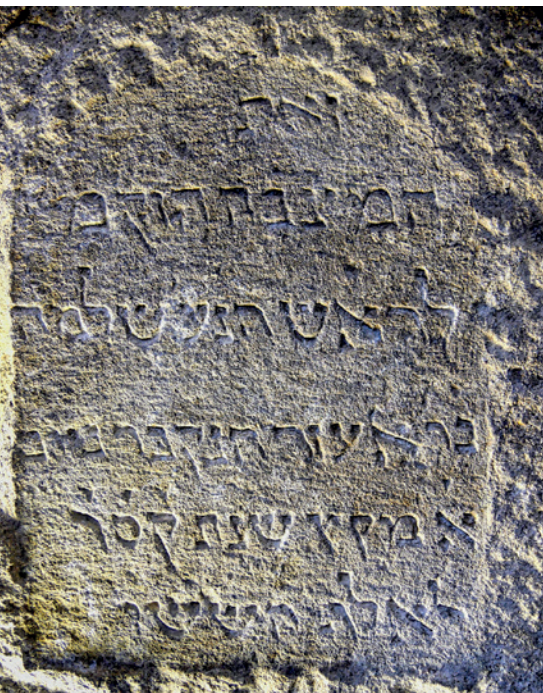 זאת
המיצבה הוקם
לראש הנע שלמה
בר אליעזר הנקבר ביום
א מקץ שנת קסד
לאלף הששי